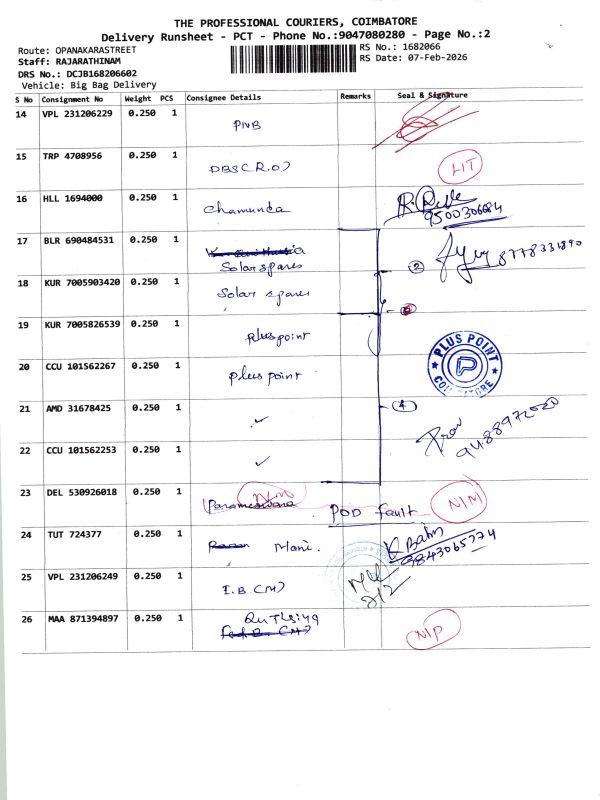 THE PROFESSIONAL COURIERS, COIMBATORE
Delivery Runsheet - PCT - Phone No.:9047080280 - Page No.:2
Route: OPANAKARASTREET
RS No.: 1682066
Staff: RAJARATHINAM
RS Date: 07-Feb-2026
DRS No.: DCJB168206602
Vehicle: Big Bag Delivery
S No Consignment No Weight PCS Consignee Details Remarks Seal & Signature
14 VPL 231206229 0.250 1 PNB
15 TRP 4708956 0.250 1 DBS(R.O) LIT
16 HLL 1694000 0.250 1 Chamunda
17 BLR 690484531 0.250 1
Solar spares 2
18 KUR 7005903420 0.250 1 Solar spares
19 KUR 7005826539 0.250 1 plus point
PLUS POINT
COIMBATORE
20 CCU 101562267 0.250 1 plus point
21 AMD 31678425 0.250 1 ✓ 4
22 CCU 101562253 0.250 1 ✓
23 DEL 530926018 0.250 1 Parameswara N/M POD fault N/M
24 TUT 724377 0.250 1 Mani. K Babu
9843065274
25 VPL 231206249 0.250 1 I.B.(M)
26 MAA 871394897 0.250 1
N/P